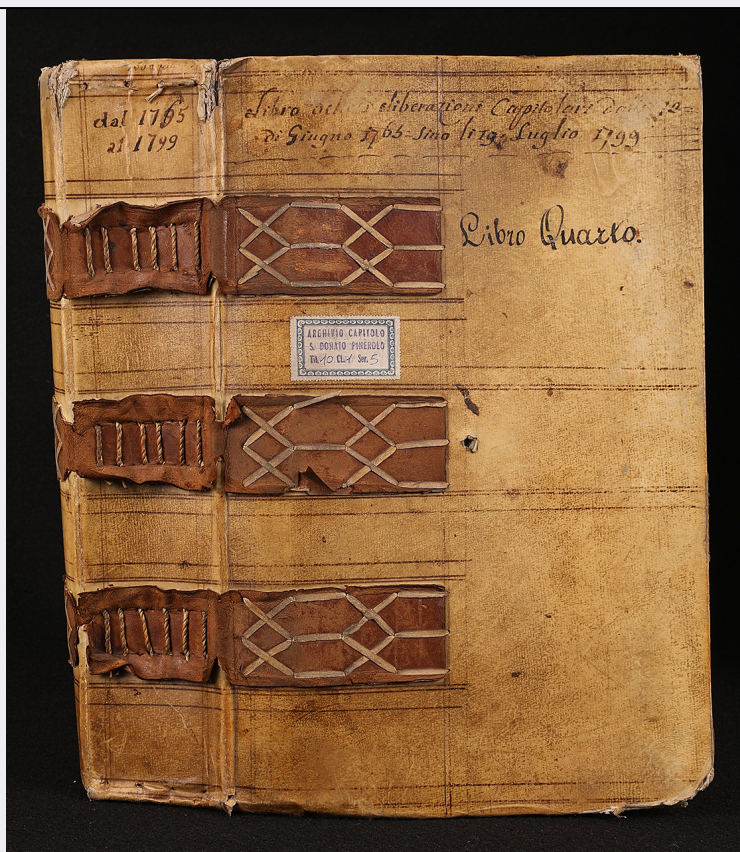 dal 1765
al 1799
Libro deliberazioni Capitolari 12=
di Giugno 1765= sino li 19 Luglio 1799
Libro Quarto.
ARCHIVIO CAPITOLO
S. DONATO PINEROLO
Tit. 10 Cl. 1 Ser. 5